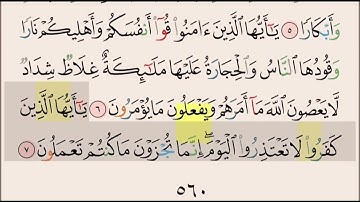 وَأَبْكَارًا ٥ يَٰٓأَيُّهَا ٱلَّذِينَ ءَامَنُوا۟ قُوٓا۟ أَنفُسَكُمْ وَأَهْلِيكُمْ نَارًا
وَقُودُهَا ٱلنَّاسُ وَٱلْحِجَارَةُ عَلَيْهَا مَلَٰٓئِكَةٌ غِلَاظٌ شِدَادٌ
لَّا يَعْصُونَ ٱللَّهَ مَآ أَمَرَهُمْ وَيَفْعَلُونَ مَا يُؤْمَرُونَ ٦ يَٰٓأَيُّهَا ٱلَّذِينَ
كَفَرُوا۟ لَا تَعْتَذِرُوا۟ ٱلْيَوْمَ ۖ إِنَّمَا تُجْزَوْنَ مَا كُنتُمْ تَعْمَلُونَ ٧
٥٦٠